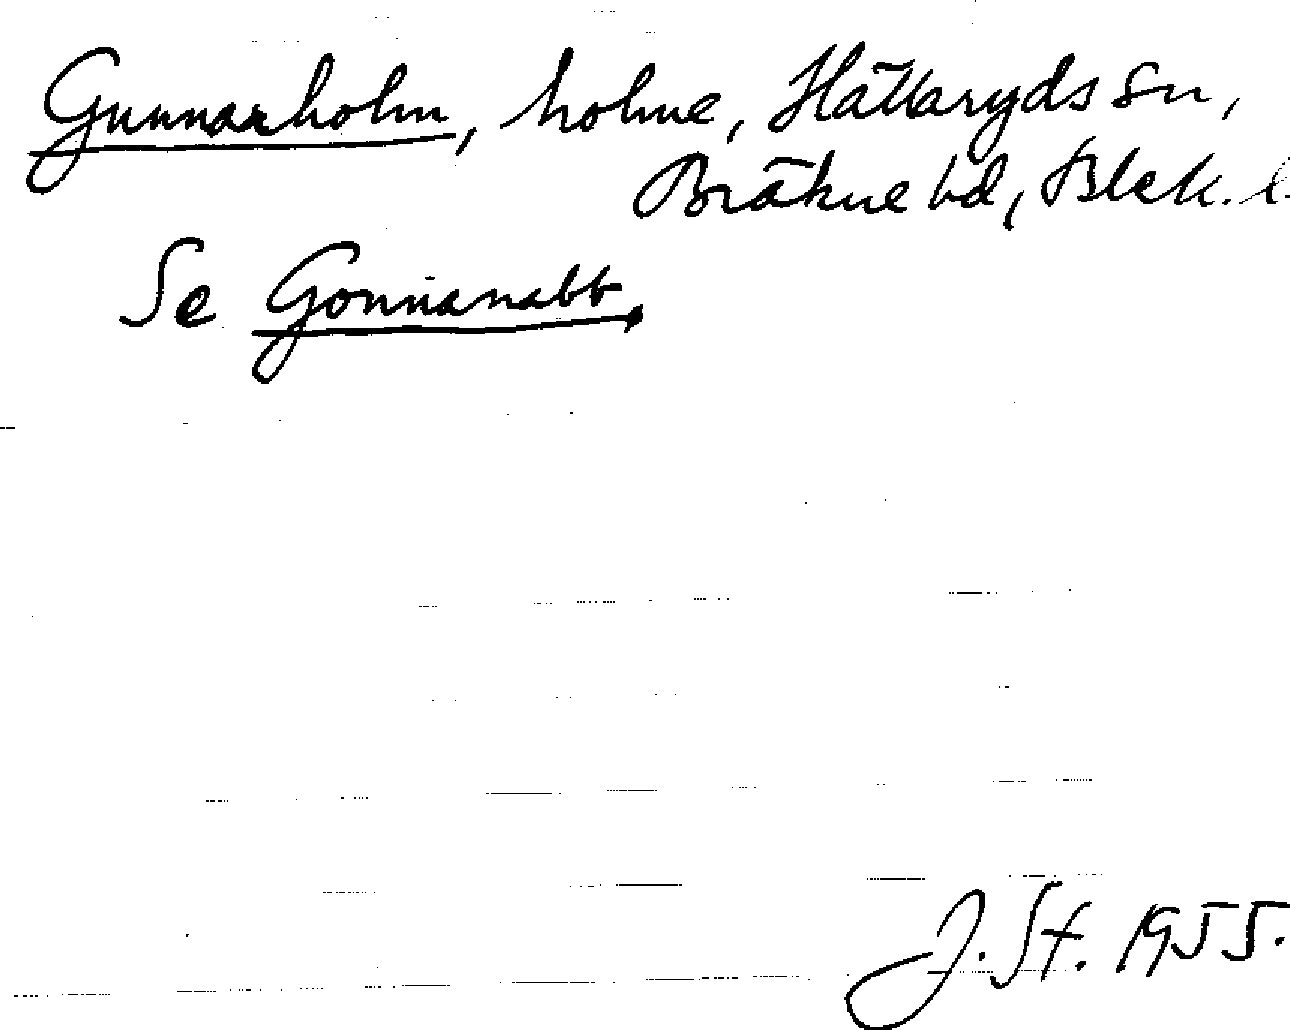 Gunnarholm, holme, Hällaryds sn,
Bräkne hd, Blek. l.
Se Gonnanabb.
J. St. 1955.